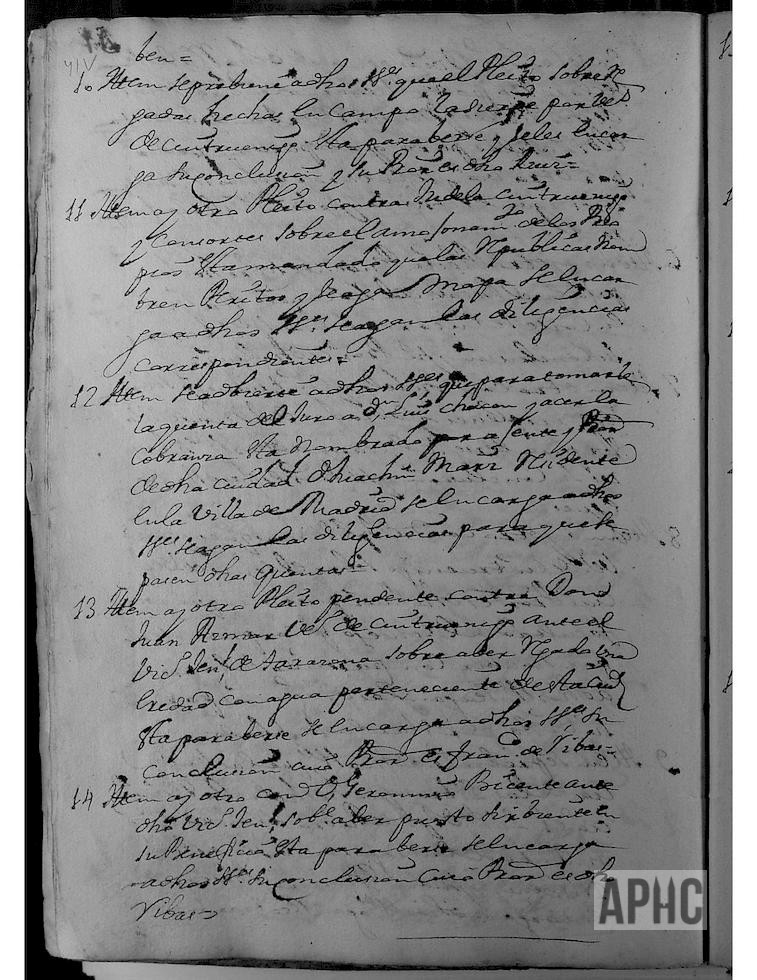 41V
ben=
10 Ittem se prebiene a dhos SSes que el Pleito sobre Re
gadas hechas en Campo la Sierpe por Vesos
de Cintruenigo Esta para berse y se les encar
ga su conclusion y su Pror es dho Ruiz=
11 Ittem ay otro Pleito contra Tudela Cintruenigo
y Consortes sobre el amojonamto de los
pios Esta mandado que las Republicas Nom
bren Peritos y se aga Mapa se encar
ga a dhos SSes se agan las diligencias
correspondientes=
12 Ittem se adbierte a dhos SSes que para tomarle
la quenta del Juro a Dn Luis Chacon y acer la
Cobranza Esta Nombrado por Ajente y Pror
de dha Ciudad Dn Juachin Marz Residente
en la Villa de Madrid se encarga a dhos
SSes se agan las diligencias para que se
pasen dhas quentas=
13 Ittem ay otro Pleito pendente contra Don
Juan Aznar Veso de Cintruenigo ante el
Vico Jenl de Tarazona sobre aber Regado una
Eredad con agua perteneciente de esta Ciud
Esta para berse se encarga a dhos SSes su
Conclusion cuio Pror es Franco de Vibas=
14 Ittem ay otro con Dn Geronimo Bicente ante
dho Vico Jenl sobe aber puesto sirbiente en
su Beneficio Esta para berse se encarga
a dhos SSes su conclusion Cuio Pror es dho
Vibas=
APHC